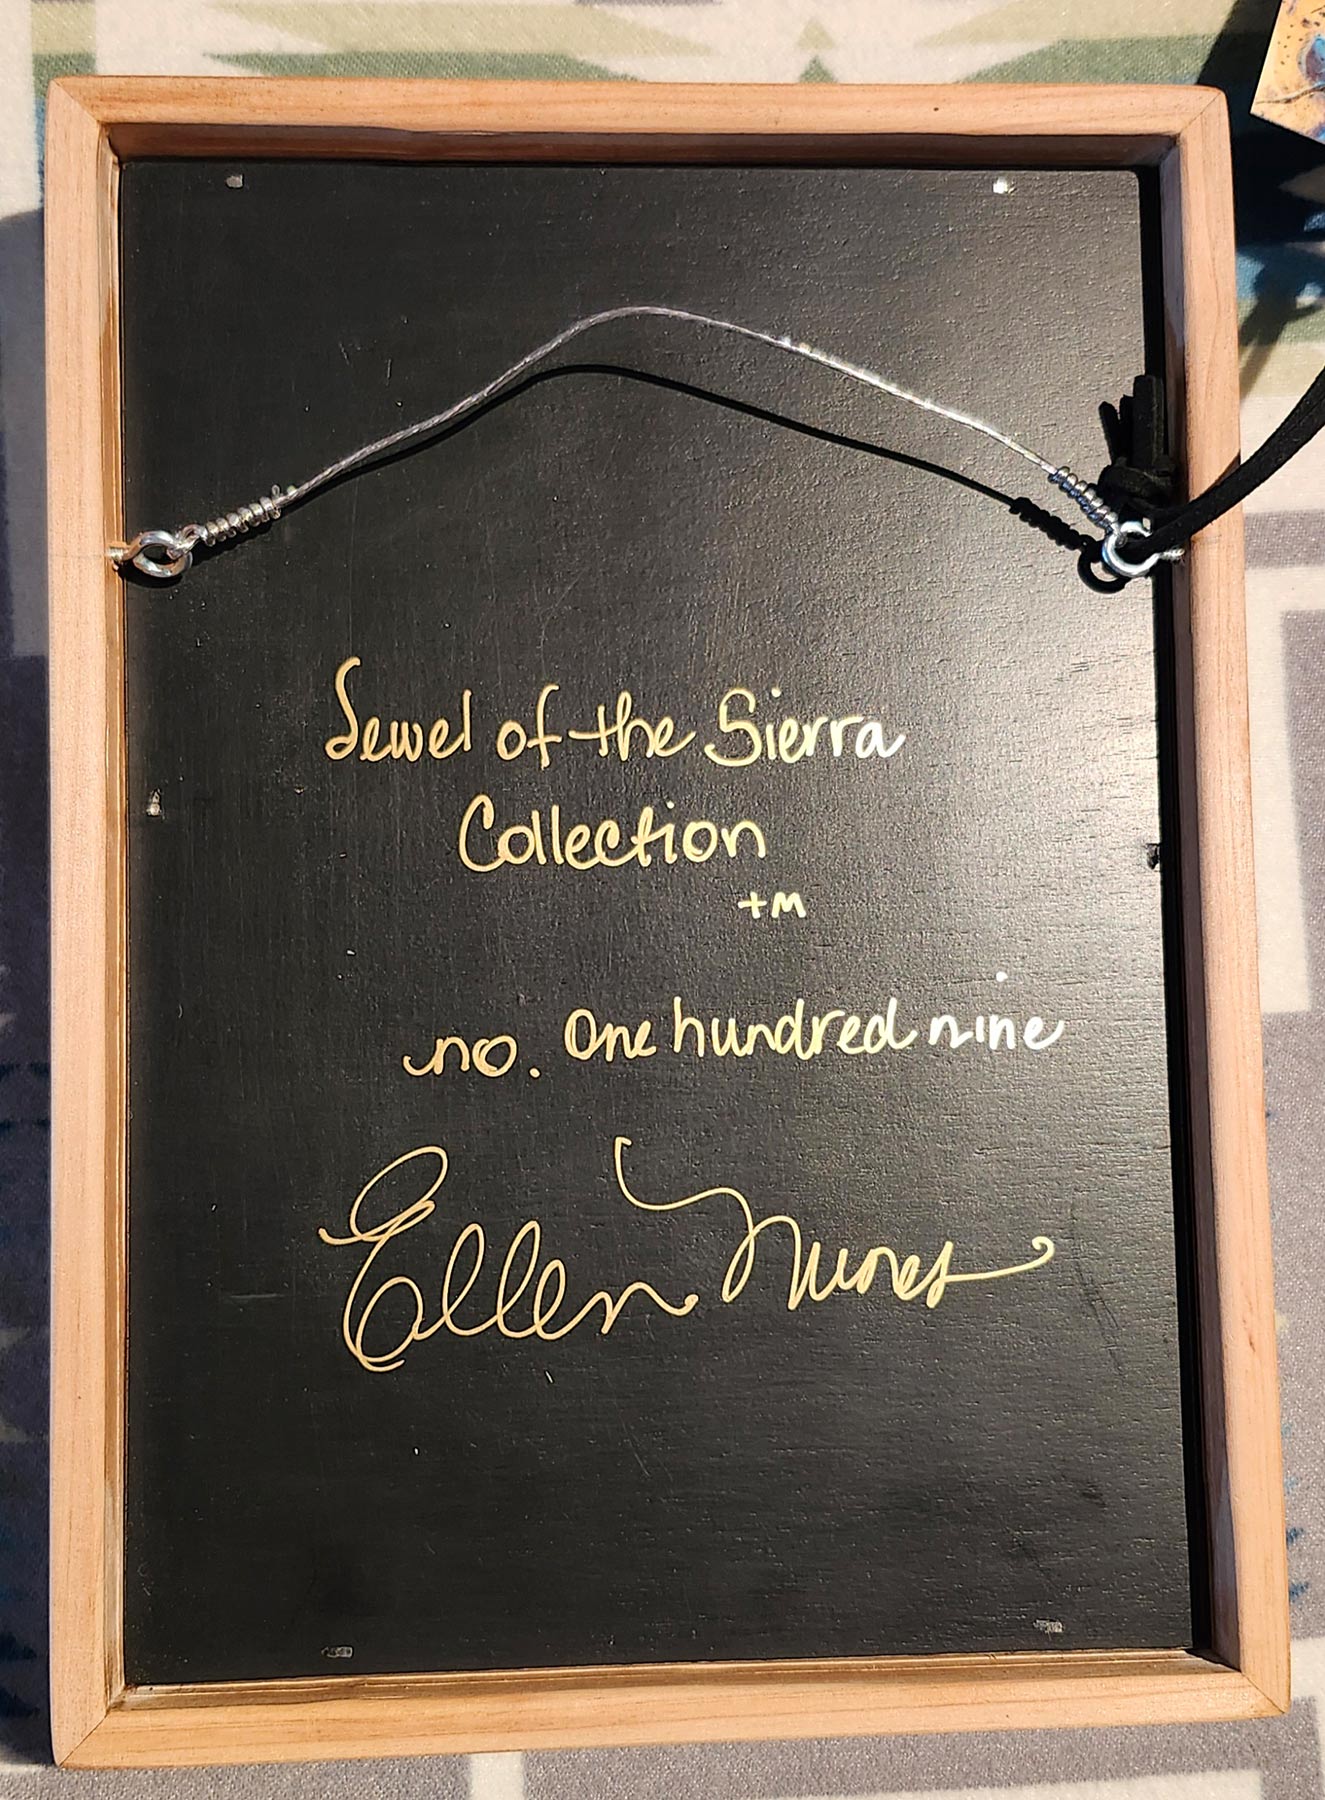 Jewel of the Sierra
Collection
tm
no. One hundred nine
Ellen Nunes